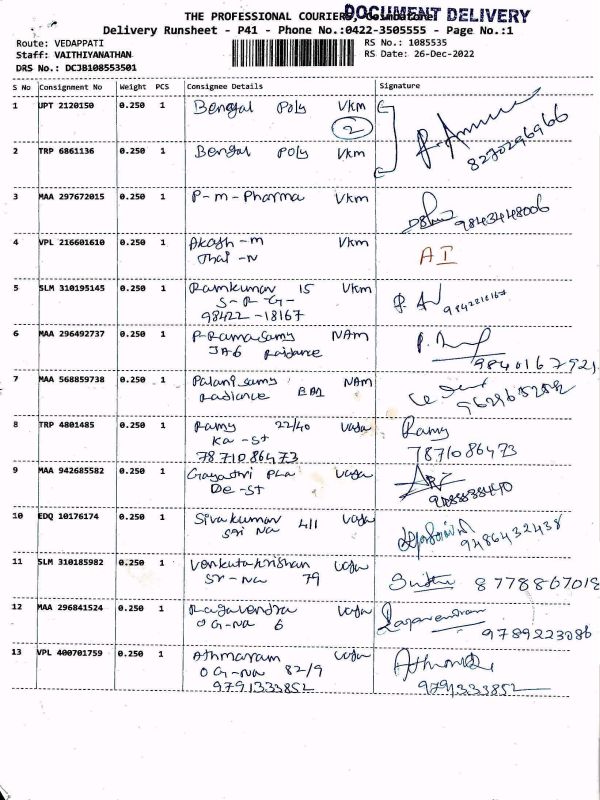 THE PROFESSIONAL COURIERS, Coimbatore
DOCUMENT DELIVERY
Delivery Runsheet - P41 - Phone No.:0422-3505555 - Page No.:1
Route: VEDAPPATI RS No.: 1085535
Staff: VAITHIYANATHAN RS Date: 26-Dec-2022
DRS No.: DCJB108553501
S No Consignment No Weight PCS Consignee Details Signature
1 UPT 2120150 0.250 1 Bengal Poly Vkm
2
8270296966
2 TRP 6861136 0.250 1 Bengal Poly Vkm
3 MAA 297672015 0.250 1 P-m-Pharma Vkm
9843448006
4 VPL 216601610 0.250 1 Akash-m Vkm AI
Thai-N
5 SLM 310195145 0.250 1 Ramkumar 15 Vkm
S-R-G- 9842218167
98422-18167
6 MAA 296492737 0.250 1 P-Ramasamy NAm
JA6 Raidance 9840167921
7 MAA 568859738 0.250 1 Palanisamy NAm
Radiance
8 TRP 4801485 0.250 1 Ramy 22/40 Vada Ramy
Ka-St 7871086473
7871086473
9 MAA 942685582 0.250 1 Gayathri Vada
De-St
10 EDQ 10176174 0.250 1 Sivakumar 4/1 Vada
Sri Na 9486432438
11 SLM 310185982 0.250 1 Venkatakrishnan Vada
Sr-Na 79 8778867018
12 MAA 296841524 0.250 1 Ragavendra Vada Ragavendran
O G-Na 6 9789223086
13 VPL 400701759 0.250 1 Athmaram Vada
O G-Na 82/9
9791333852 9791333852